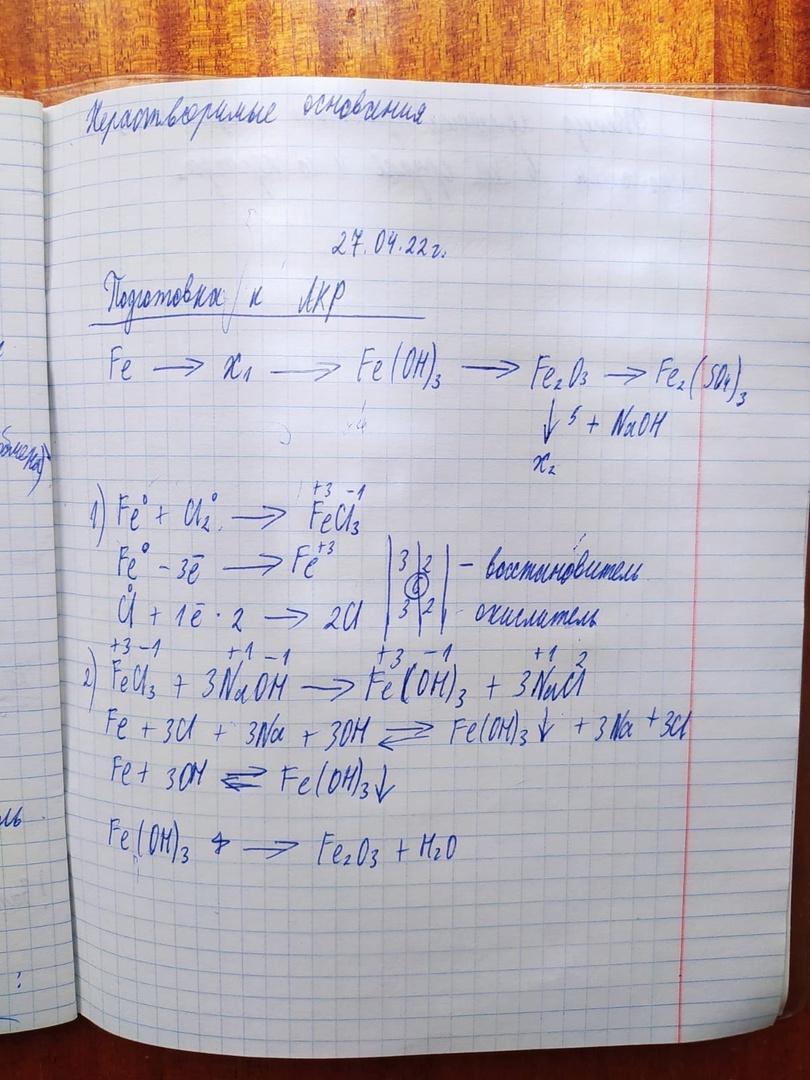 Нерастворимые основания
27.04.22г.
Подготовка к ЛКР
Fe → x₁ → Fe(OH)₃ → Fe₂O₃ → Fe₂(SO₄)₃
↓ 5 + NaOH
x₂
+3 -1
1) Fe⁰ + Cl₂⁰ → FeCl₃
Fe⁰ - 3ē → Fe⁺³ | 3 | 2 | - восстановитель
6
Cl⁰ + 1ē · 2 → 2Cl | 3 | 2 | окислитель
+3 -1 +1 -1 +3 -1 +1 2
2) FeCl₃ + 3NaOH → Fe(OH)₃ + 3NaCl
Fe + 3Cl + 3Na + 3OH ⇄ Fe(OH)₃↓ + 3Na + 3Cl
Fe + 3OH ⇄ Fe(OH)₃↓
Fe(OH)₃ → Fe₂O₃ + H₂O
ль